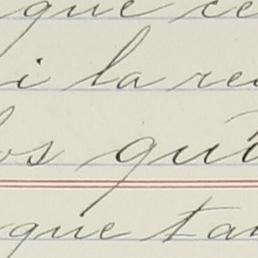 que ce
i la re
os qu'
que ta